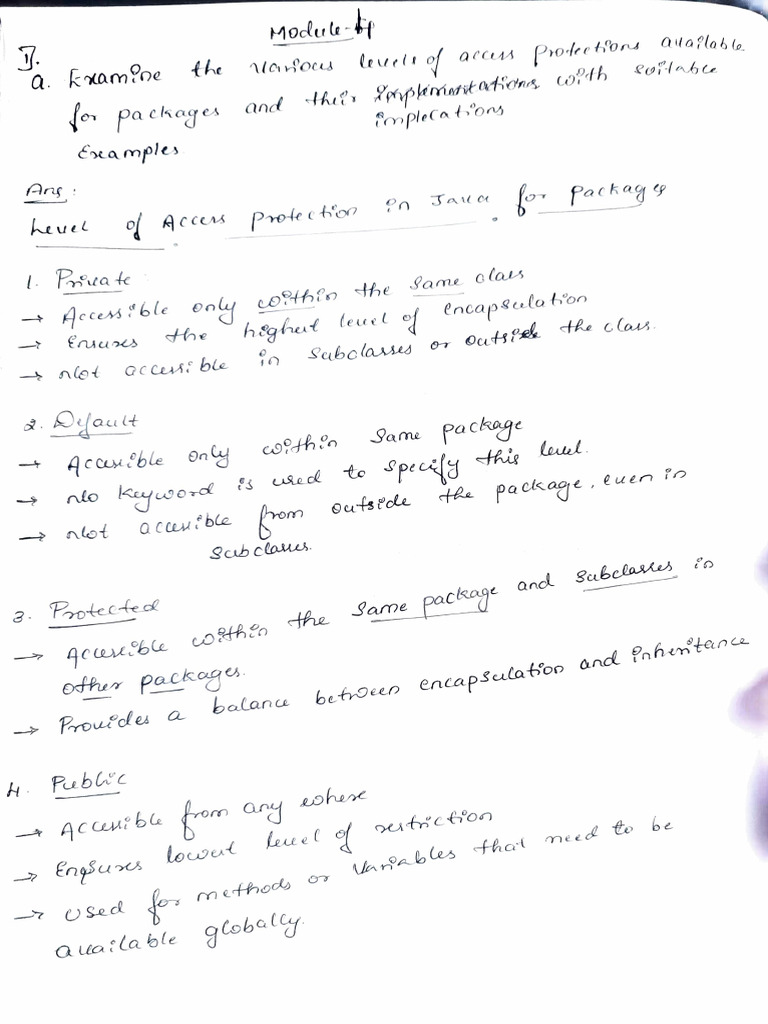 Module-4
I.
a. Examine the various levels of access protections available
for packages and their implementations with suitable
implications
Examples
Ans:
Level of Access protection in Java for packages
1. Private
→ Accessible only within the same class
→ Ensures the highest level of encapsulation
→ Not accessible in subclasses or outside the class.
2. Default
→ Accessible only within same package
→ No keyword is used to specify this level.
→ Not accessible from outside the package, even in
subclasses.
3. Protected
→ Accessible within the same package and subclasses in
other packages.
→ Provides a balance between encapsulation and inheritance
4. Public
→ Accessible from any where
→ Ensures lowest level of restriction
→ Used for methods or variables that need to be
available globally.